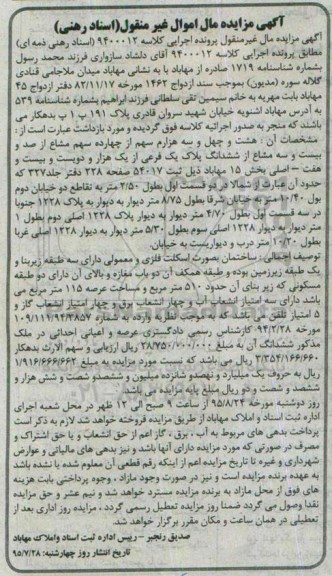 آگهی مزایده مال اموال غیر منقول(اسناد رهنی)
آگهی مزایده مال غیرمنقول پرونده اجرایی کلاسه ۹۴۰۰۰۱۲ (اسناد رهنی ذمه ای)
مطابق پرونده اجرایی کلاسه ۹۴۰۰۰۱۲ آقای دلشاد سازواری فرزند محمد رسول
بشماره شناسنامه ۱۷۱۹ صادره از مهاباد با به نشانی مهاباد میدان ملاجامی قنادی
گلاله سوره (مدیون) بموجب سند ازدواج ۱۴۶۲ مورخه ۸۲/۱۱/۱۷ دفتر ازدواج ۴۵
مهاباد بابت مهریه به خانم سیمین تقی سلطانی فرزند ابراهیم بشماره شناسنامه ۵۳۹
به آدرس مهاباد اشنویه خیابان شهید سروان قادری پلاک ۱۹۱ پ ۱ بدهکار می
باشند که منجر به صدور اجرائیه کلاسه فوق گردیده و مورد بازداشت عبارت است از :
مشخصات آن : هشت و چهل و سه هزارم سهم از چهارده سهم مشاع از صد و
بیست و سه مشاع از ششدانگ پلاک یک فرعی از یک هزار و دویست و بیست و
هفت – اصلی بخش ۱۵ مهاباد ذیل ثبت ۵۴۰۱۷ صفحه ۲۲۸ دفتر جلد ۳۲۷ که
حدود آن عبارت از شمالا در دو قسمت اول بطول ۲/۵۰ متر به تقاطع دو خیابان دوم
بول ۱۰/۴۰ متر به خیابان شرقا بطول ۸/۷۵ متر دیوار به دیوار به پلاک ۱۲۲۸ جنوبا
در سه قسمت اول بطول ۴/۷۰ متر دیوار به دیوار پلاک ۱۲۲۸ اصلی دوم بطول ۱
متر دیوار به دیوار ۱۲۲۸ اصلی سوم بطول ۵/۳۰ متر دیوار به دیوار ۱۲۲۸ اصلی غربا
بطول ۱۰/۲۰ متر درب و دیواریست به خیابان.
توصیف اجمالی : ساختمان بصورت اسکلت فلزی و معمولی دارای سه طبقه زیربنا و
یک طبقه زیرزمین بوده و طبقه همکف آن دو باب مغازه و بالای آن دارای دو طبقه
مسکونی که زیر بنای آن حدود ۵۱۰ متر مربع و مساحت عرصه ۱۱۵ متر مربع می
باشد دارای سه امتیاز انشعاب آب و چهار انشعاب برق و چهار امتیاز انشعاب گاز و
۵ امتیاز تلفن می باشد که بموجب نظریه وارده به شماره ۱۰۹/۱۱۱/۹۴۳/۳۸۵۷
مورخه ۹۴/۲/۲۸ کارشناس رسمی دادگستری عرصه و اعیانی احداثی در ملک
مذکور ششدانگ آن به مبلغ ۲۸/۷۵۰/۰۰۰/۰۰۰ ریال ارزیابی و سهم الارث بدهکار
۳/۳۵۴/۱۶۶/۶۶۰ ریال می باشد که نسبت مورد مزایده به مبلغ ۱/۹۱۶/۶۶۶/۶۶۲
ریال به حروف یک میلیارد و نهصدو شانزده میلیون و ششصدو شصت و شش هزار و
ششصد و شصت و دو ریال مبلغ پایه مزایده می باشد
روز دوشنبه مورخه ۹۵/۸/۲۴ از ساعت ۹ صبح الی ۱۲ ظهر در محل شعبه اجرای
اداره ثبت اسناد و املاک مهاباد از طریق مزایده فروخته خواهد شد لازم به ذکر است
پرداخت بدهی های مربوط به آب ، برق ، گاز اعم از حق انشعاب و یا حق اشتراک و
مصرف در صورتی که مورد مزایده دارای آنها باشد و نیز بدهی های مالیاتی و عوارض
شهرداری و غیره تا تاریخ مزایده اعم از اینکه رقم قطعی آن معلوم شده یا نشده باشد
به عهده برنده مزایده است و نیز در صورت وجود مازاد ، وجوه پرداختی بابت هزینه
های فوق از محل مازاد به برنده مزایده مسترد خواهد شد و نیم عشر و حق مزایده
نقدا وصول می گردد ضمنا روز مزایده تعطیل رسمی گردد ، مزایده روز اداری بعد از
تعطیلی در همان ساعت و مکان مقرر برگزار خواهد شد.
صدیق رنجبر – رییس اداره ثبت اسناد واملاک مهاباد
تاریخ انتشار روز چهارشنبه: ۹۵/۷/۲۸